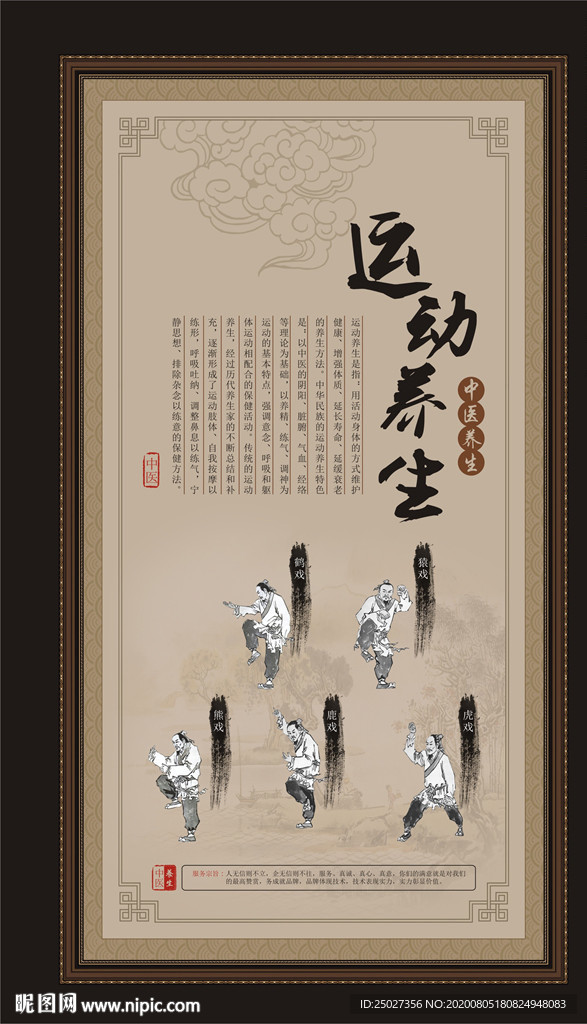 运动养生
中医养生
运动养生是指：用活动身体的方式维护
健康、增强体质、延长寿命、延缓衰老
的养生方法。中华民族的运动养生特色
是：以中医的阴阳、脏腑、气血、经络
等理论为基础，以养精、练气、调神为
运动的基本特点，强调意念、呼吸和躯
体运动相配合的保健活动。传统的运动
养生，经过历代养生家的不断总结和补
充，逐渐形成了运动肢体、自我按摩以
练形，呼吸吐纳、调整鼻息以练气，宁
静思想、排除杂念以练意的保健方法。
中医
鹤戏
猿戏
熊戏
鹿戏
虎戏
中医
养生
服务宗旨：人无信则不立，企无信则不往。服务，真诚，真心，真意，你们的满意就是对我们
的最高赞赏，务成就品牌，品牌体现技术，技术表现实力，实力彰显价值。
昵图网 www.nipic.com
ID:25027356 NO:20200805180824948083